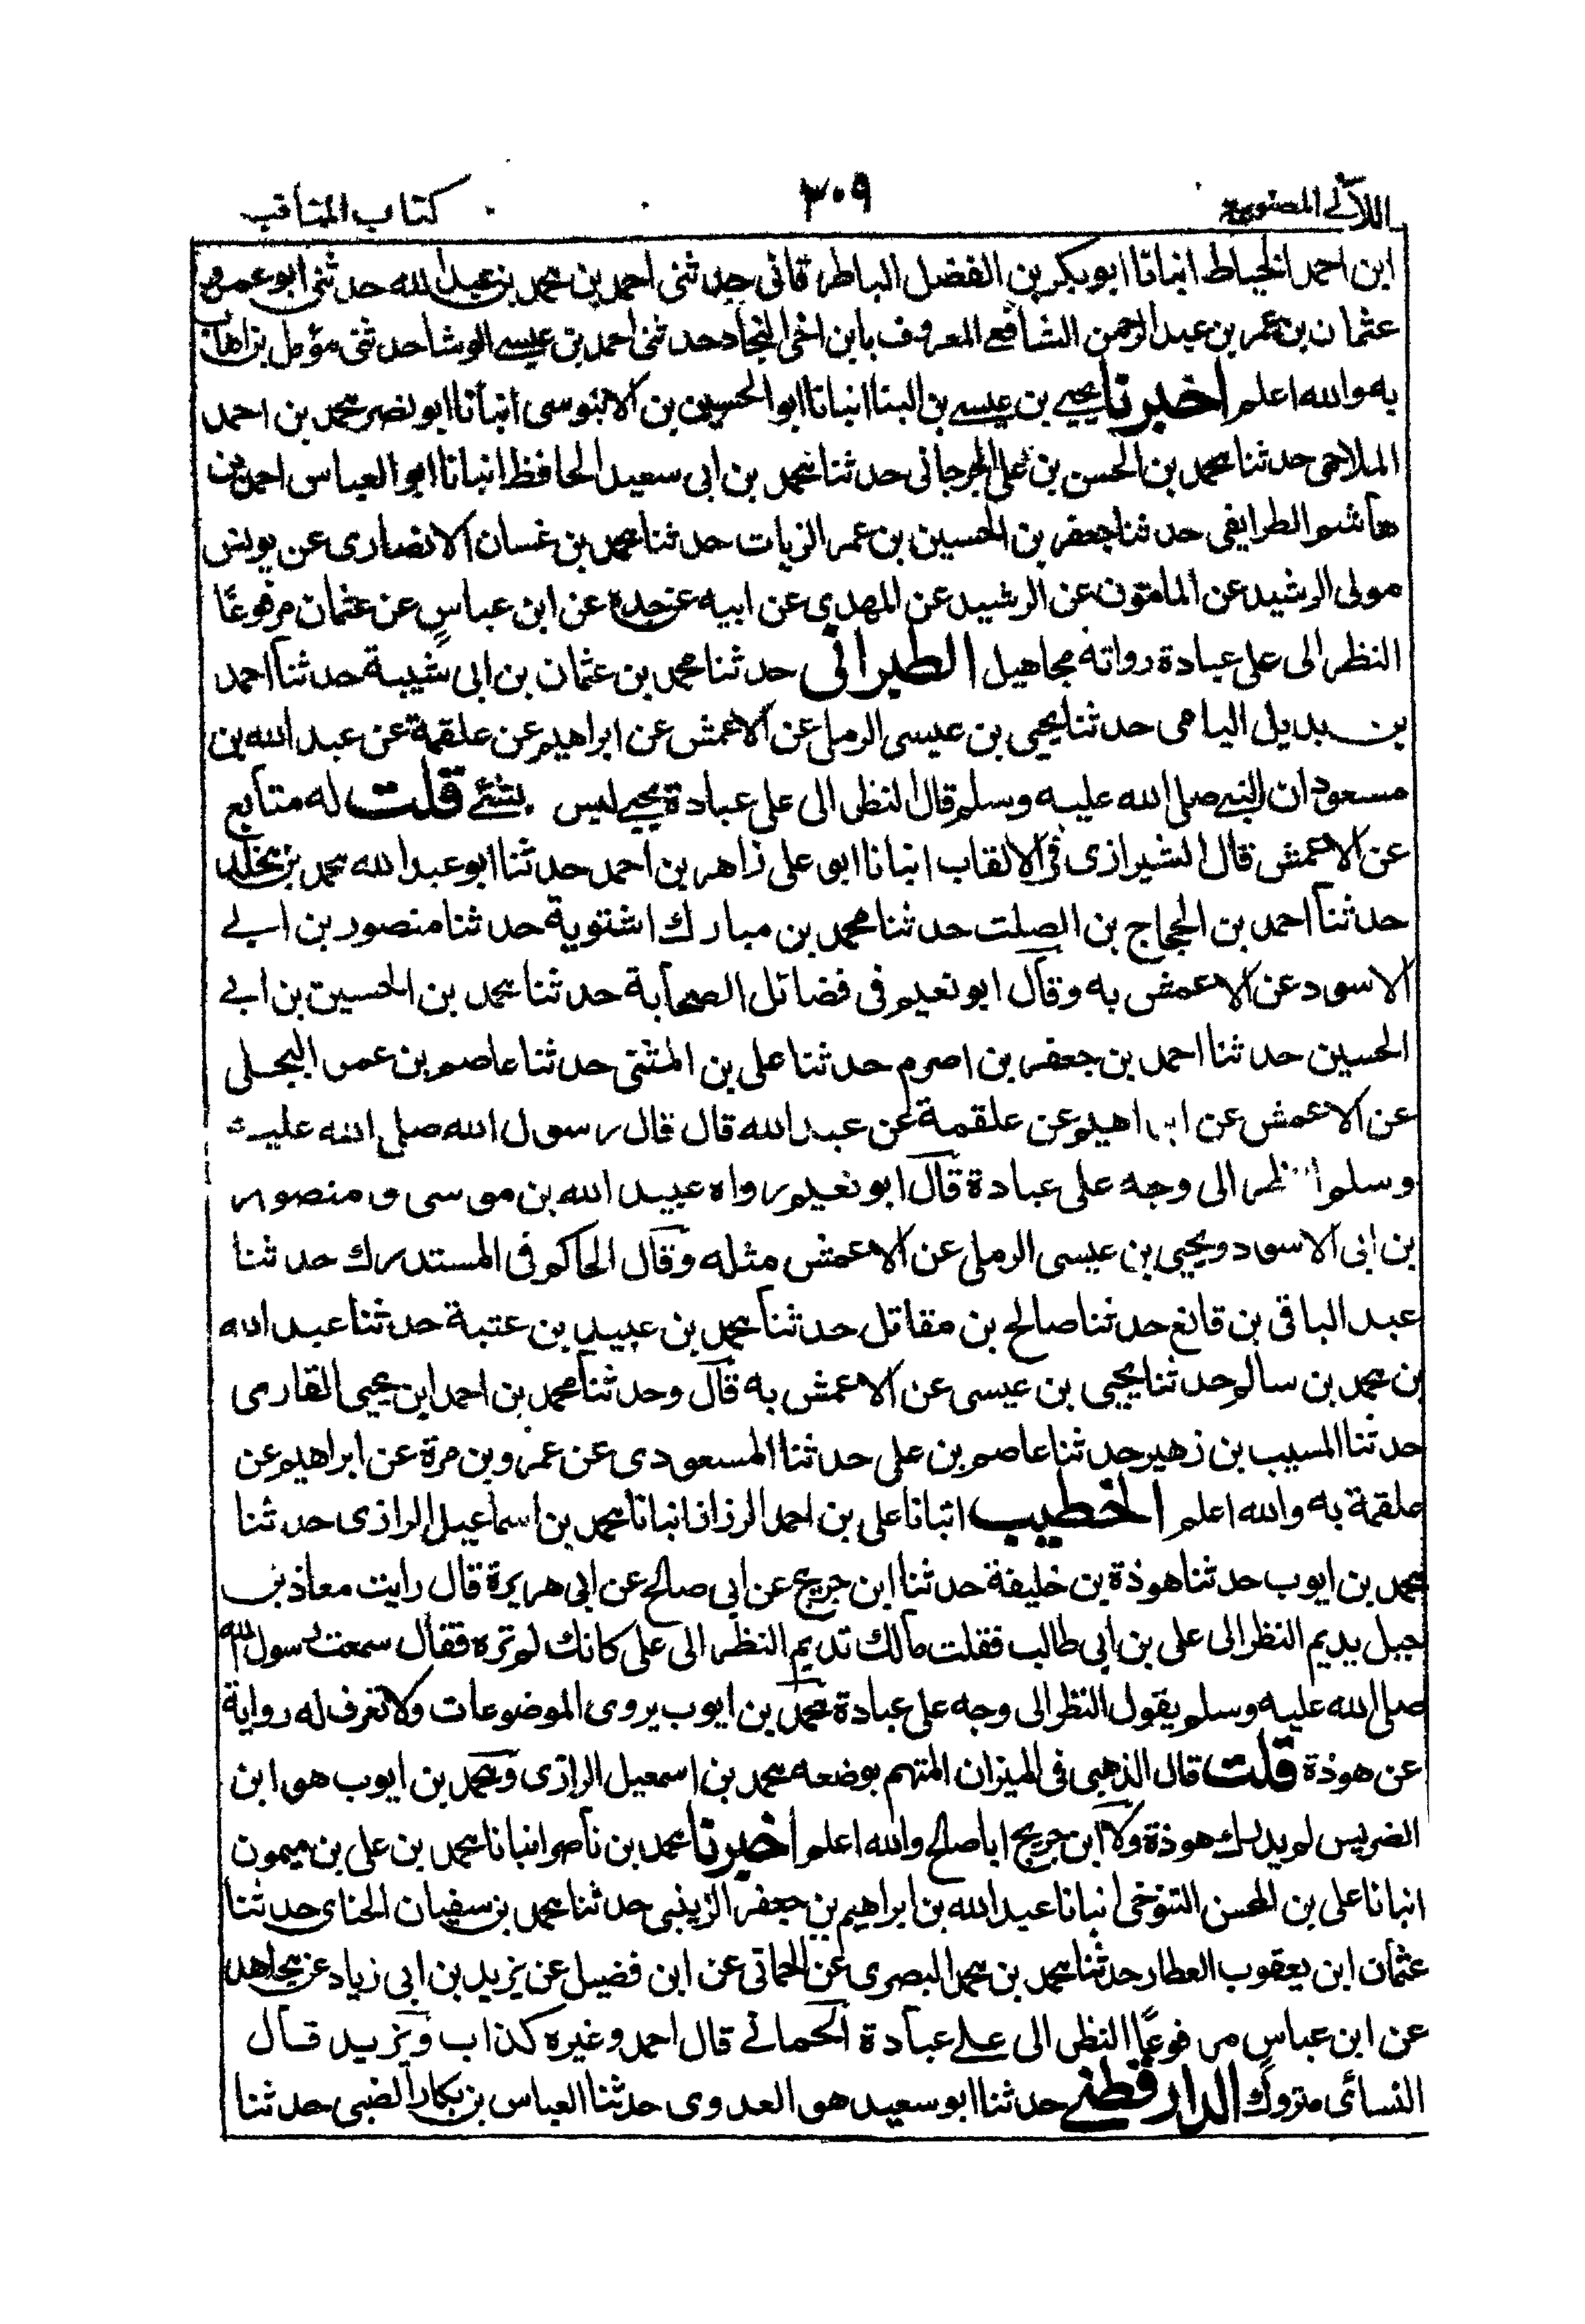 اللآلي المصنوعة ٣٠٩ كتاب المناقب
ابن احمد الخياط انبانا ابو بكر بن الفضل الباطرقانى حدثنى احمد بن محمد بن عبد الله حدثنى ابو عمرو
عثمان بن عمر بن عبد الرحمن الشافعى المعروف بابن اخى النجاد حدثنى احمد بن عيسے الوشا حدثنى مؤمل بن اهاب
به والله اعلم اخبرنا يحيے بن عيسے بن البنا انبانا ابو الحسين بن الابنوسى انبأنا ابو نصر محمد بن احمد
الملاحمى حدثنا محمد بن الحسن بن على الجرجانى حدثنا محمد بن ابى سعيد الحافظ انبانا ابو العباس احمد بن
هاشم الطرايفى حدثنا جعفر بن الحسين بن عمر الزيات حدثنا محمد بن غسان الانصارى عن يونس
مولى الرشيد عن المامون عن الرشيد عن المهدى عن ابيه عن جده عن ابن عباس عن عثمان مرفوعًا
النظر الى على عبادة رواته مجاهيل الطبرانى حدثنا محمد بن عثمان بن ابى شيبة حدثنا احمد
بن بديل اليامى حدثنا يحيى بن عيسى الرملى عن الاعمش عن ابراهيم عن علقمة عن عبد الله بن
مسعود ان النبے صلى الله عليه وسلم قال النظر الى على عبادة يحيے ليس بشئے قلت له متابع
عن الاعمش قال الشيرازى فى الالقاب انبانا ابو على زاهر بن احمد حدثنا ابو عبد الله محمد بن مخلد
حدثنا احمد بن الحجاج بن الصلت حدثنا محمد بن مبارك اشتوية حدثنا منصور بن ابے
الاسود عن الاعمش به وقال ابو نعيم فى فضائل الصحابة حدثنا محمد بن الحسين بن ابے
الحسين حدثنا احمد بن جعفر بن اصرم حدثنا على بن المثنى حدثنا عاصم بن عمر البجلى
عن الاعمش عن ابراهيم عن علقمة عن عبد الله قال قال رسول الله صلى الله عليه
وسلم النظر الى وجه على عبادة قال ابو نعيم رواه عبيد الله بن موسى و منصور
بن ابى الاسود ويحيى بن عيسى الرملى عن الاعمش مثله وقال الحاكم فى المستدرك حدثنا
عبد الباقى بن قانع حدثنا صالح بن مقاتل حدثنا محمد بن عبيد بن عتبة حدثنا عبد الله
بن محمد بن سالم حدثنا يحيى بن عيسى عن الاعمش به قال وحدثنا محمد بن احمد ابن يحيى القارى
حدثنا المسيب بن زهير حدثنا عاصم بن على حدثنا المسعودى عن عمرو بن مرة عن ابراهيم عن
علقمة به والله اعلم الخطيب انبانا على بن احمد الرزاز انبانا محمد بن اسماعيل الرازى حدثنا
محمد بن ايوب حدثنا هوذة بن خليفة حدثنا ابن جريج عن ابى صالح عن ابى هريرة قال رايت معاذ بن
جبل يديم النظر الى على بن ابى طالب فقلت مالك تديم النظر الى على كانك لم تره فقال سمعت رسول الله
صلى الله عليه وسلم يقول النظر الى وجه على عبادة محمد بن ايوب يروى الموضوعات ولا تعرف له رواية
عن هوذة قلت قال الذهبى فى الميزان المتهم بوضعه محمد بن اسمعيل الرازى ومحمد بن ايوب هو ابن
الضريس لم يدرك هوذة ولا ابن جريج ابا صالح والله اعلم اخبرنا محمد بن ناصر انبانا محمد بن على بن ميمون
انبانا على بن المحسن التنوخى انبانا عبد الله بن ابراهيم بن جعفر الزينبى حدثنا محمد بن سفيان الحنائى حدثنا
عثمان ابن يعقوب العطار حدثنا محمد بن محمد البصرى عن الحمانى عن ابن فضيل عن يزيد بن ابى زياد عن مجاهد
عن ابن عباس مرفوعًا النظر الى علے عبادة الحمانے قال احمد وغيره كذاب ويزيد قال
النسائى متروك الدارقطنے حدثنا ابو سعيد هو العدوى حدثنا العباس بن بكار الضبى حدثنا